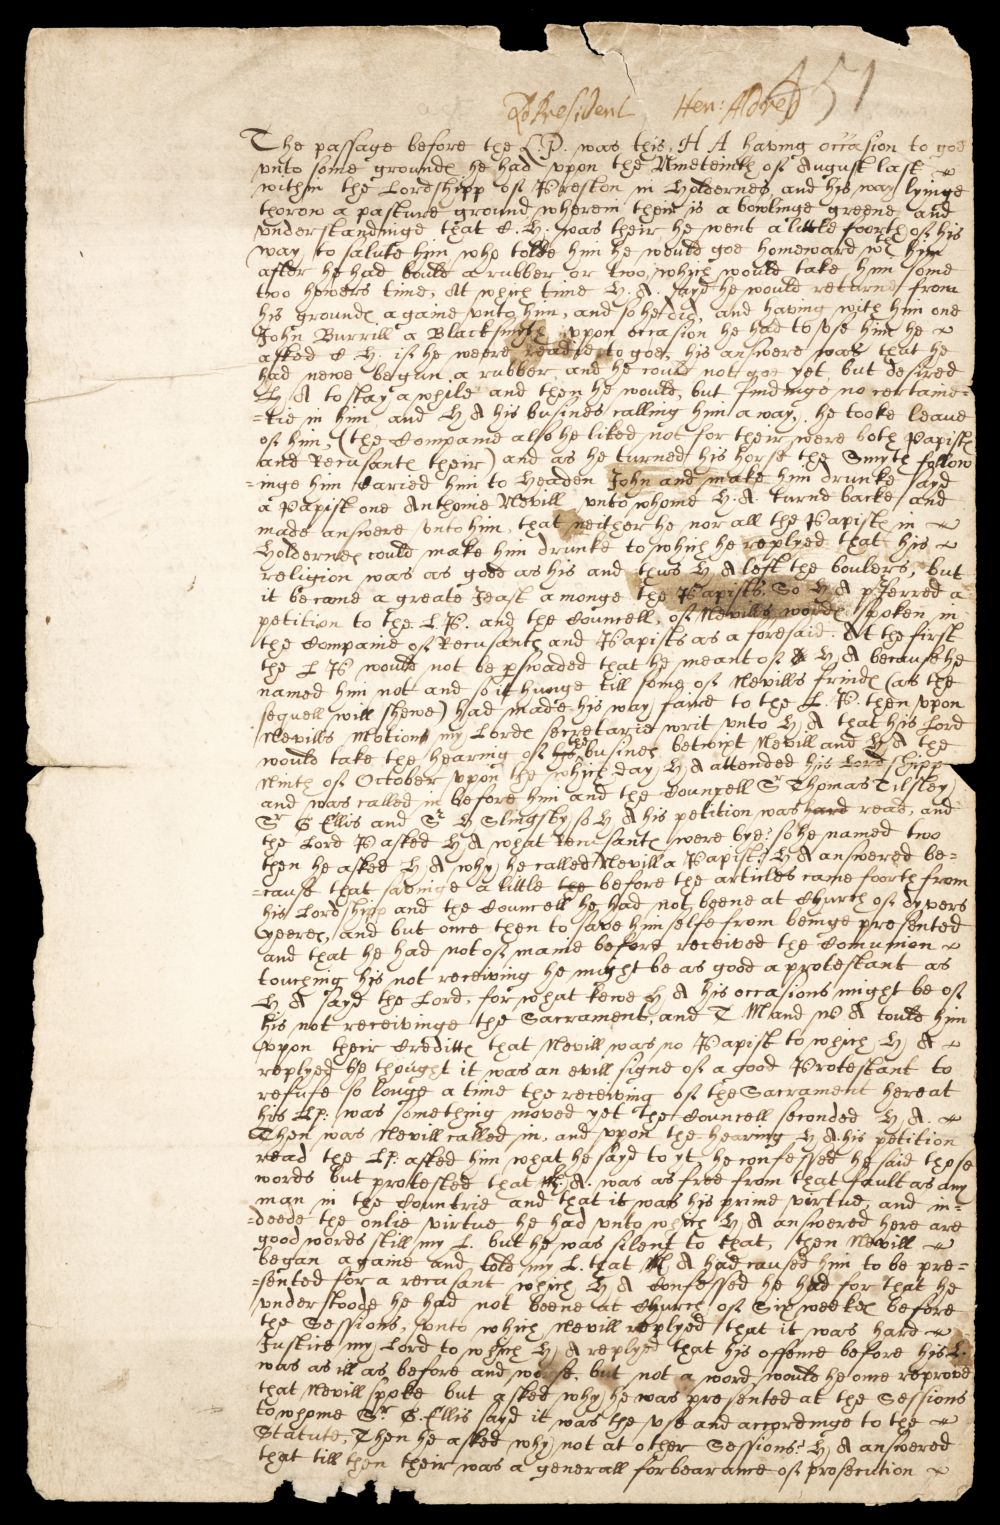 451
Ld President Hen: Aldred
The passage before the L.P. was this, H A having occasion to goe
vnto some groundes he had vpon the Nineteinth of August last
within the Lordshipp of Preston in Holdernes, and his way lyinge
thorow a pasture ground, wherein their is a bowlinge greene, and
vnderstandinge that C. H. was their he went a little foorth of his
way to salute him, who tolde him he would goe homeward wth him
after he had bould a rubber or two, which would take him some
two howers time, At which time H. A. sayd he would returne from
his groundes againe vnto him, and so he did, and having with him one
John Burrill a Blacksmyth vpon occasion he had to vse him he
asked C. H. if he weere readye to goe, his answere was that he
had newe begun a rubber and he could not goe yet, but desired
H A to stay a while and then he would, but findinge no certaine=
=tie in him and H A his busines calling him away, he tooke leaue
of him, (the Companie also he liked not for their were both Papists
and Recusantes their) and as he turned his horse the Smyth follow
=inge him Caried him to Headen John and make him drunke sayd
a Papist one Anthonie Nevill vnto whome H. A. turnd backe and
made answere vnto him, that neither he nor all the Papists in
Holdernes could make him drunke to which he replyed that his
religion was as good as his and thus H A left the boulers, but
it became a greate Jeast amonge the Papists. So H A pferred a
petition to the L P. and the Councell, of Nevills wordes spoken in
the Companie of Recusantes and Papists as aforesaid. At the first
the L P would not be pswaded that he meant of H A because he
named him not and so it hunge till some of Nevills frindes (as the
sequell will shewe) had made his way faire to the L. P. then vpon
Nevills Motions my Lordes secretarie writ vnto H A that his Lord
would take the hearing of the busines betwixt Nevill and H A the
Ninth of October vpon the which day H A attended his Lordshipp
and was called in before him and the Councell Sr Thomas Tilsley
Sr G Ellis and Sr H Slingsby, so H A his petition was hard read, and
the Lord P asked H A what Recusantes were bye? so he named two
then he asked H A why he called Nevill a Papist? H A answered be=
=cause that savinge a little the before the articles came foorth from
his Lordshipp and the Councell he had not beene at Church of dyvers
yeeres, and but once then to save himselfe from beinge presented
and that he had not of manie before received the Comunion
touching his not receiving he might be as good a protestant as
H A sayd the Lord, for what knewe H A his occasions might be of
his not receivinge the Sacrament, and T M and W A tould him
vpon their Creditts that Nevill was no Papist to which H A
replyed he thought it was an evill signe of a good Protestant to
refuse so longe a time the receiving of the Sacrament hereat
his Lp: was something moved yet the Councell seconded H A.
Then was Nevill called in, and vpon the hearing H A his petition
read the Lp: asked him what he sayd to yt he confessed he said those
words but protested that H. A. was as free from that fault as any
man in the Countrie and that it was his prime virtue, and in=
=deede the onlie virtue he had vnto which H A answered here are
good words still my L. but he was silent to that, then Nevill
began againe and told my L. that H A had caused him to be pre=
=sented for a recusant which H A Confessed he had for that he
vnderstoode he had not beene at Church of Six weekes before
the Sessions, vnto which Nevill replyed that it was hard
Justice my Lord to which H A replyed that his offence before his L.
was as ill as before and worse, but not a word would he once reprove
that Nevill spoke but asked why he was presented at the Sessions
to whome Sr G. Ellis sayd it was the vse and accordinge to the
Statute, Then he asked why not at other Sessions? H A answered
that till then their was a generall forbearance of prosecution